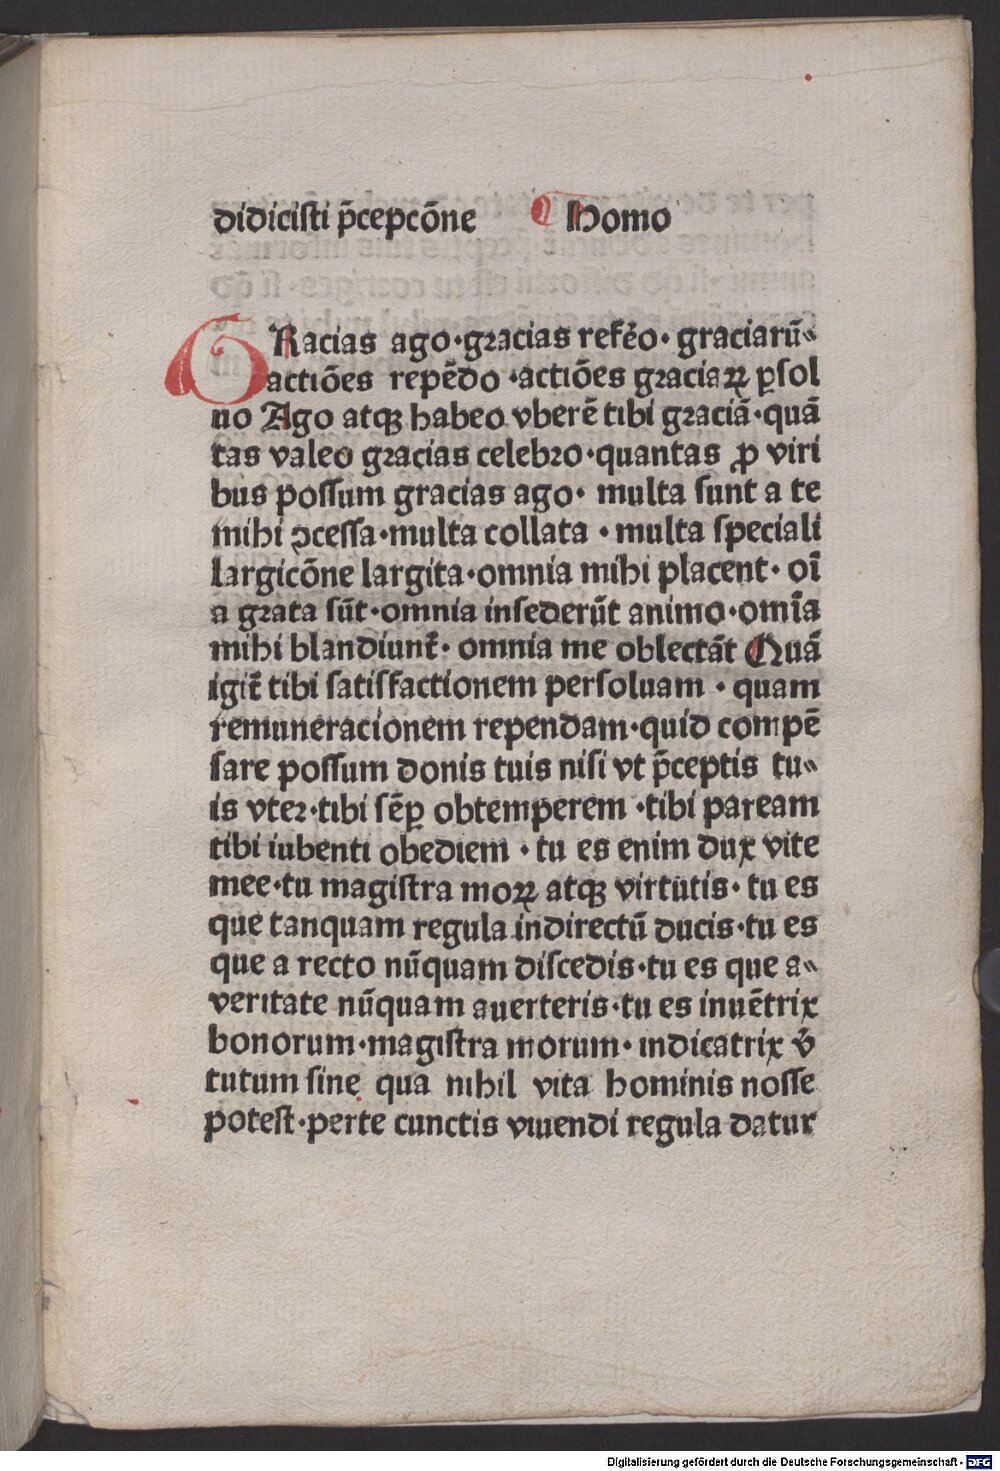 didicisti p̄cepcōne ¶ Homo
GRacias ago·gracias refe᷑o·graciarū⸗
actiōes repēdo·actiōes graciaꝝ ꝑsol
uo Ago atqꝫ habeo vberē tibi graciā·quā
tas valeo gracias celebro·quantas ꝓ viri
bus possum gracias ago·multa sunt a te
mihi ↄcessa·multa collata·multa speciali
largicōne largita·omnia mihi placent·oī
a grata sūt·omnia insederūt animo·omīa
mihi blandiunt᷑·omnia me oblectāt Quā
igit᷑ tibi satisfactionem persoluam·quam
remuneracionem rependam·quid compē
sare possum donis tuis nisi vt p̄ceptis tu⸗
is vter·tibi sēꝑ obtemperem·tibi paream
tibi iubenti obediem·tu es enim dux vite
mee·tu magistra moꝝ atqꝫ virtutis·tu es
que tanquam regula indirectū ducis·tu es
que a recto nūquam discedis·tu es que a⸗
veritate nūquam auerteris·tu es inuētrix
bonorum·magistra morum·indicatrix v̓
tutum sine qua nihil vita hominis nosse
potest·perte cunctis viuendi regula datur
Digitalisierung gefördert durch die Deutsche Forschungsgemeinschaft - DFG